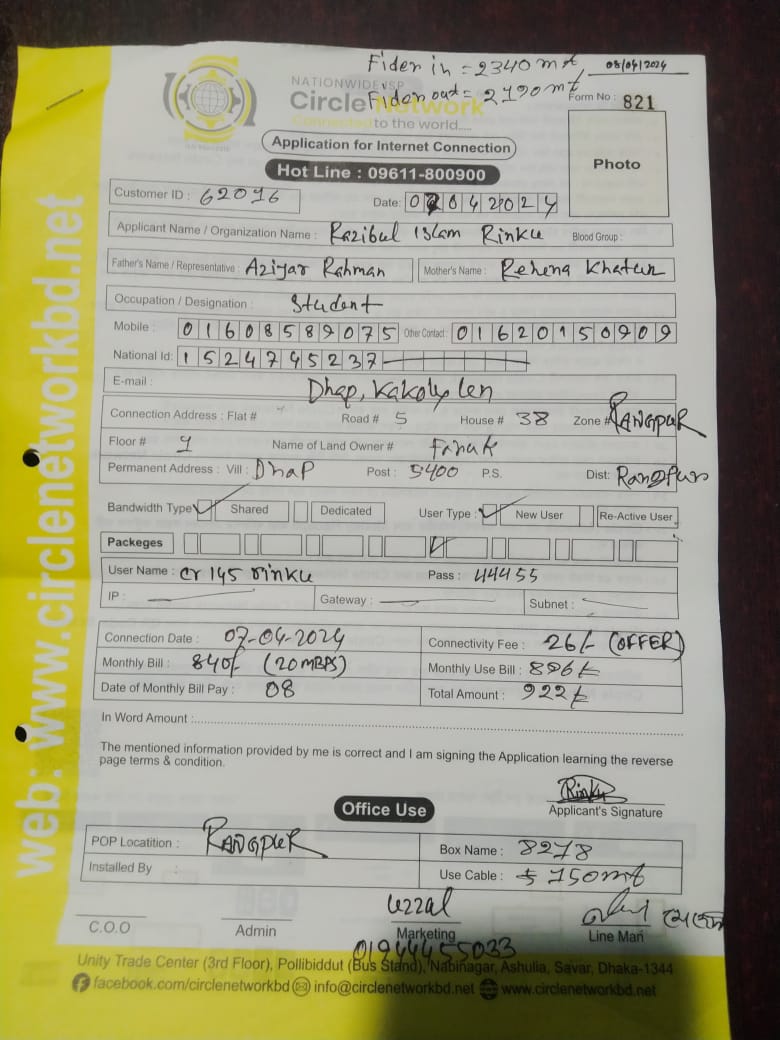 Fider in = 2340 mt
08/04/2024
NATIONWIDE ISP
Circle Network
Fider out = 2190 mt
Connected to the world.....
Form No : 821
Application for Internet Connection
Photo
Hot Line : 09611-800900
Customer ID : 62096
Date: 0 04 2024
Applicant Name / Organization Name : Razibul Islam Rinku Blood Group :
Father's Name / Representative : Aziyar Rahman Mother's Name : Rehena Khatun
Occupation / Designation : Student
Mobile : 01608589075 Other Contact : 01620150909
National Id: 1524745237
E-mail :
Dhap, Kakoly len
Connection Address : Flat # Road # 5 House # 38 Zone # RANGPUR
Floor # 1 Name of Land Owner # Faruk
Permanent Address : Vill : Dhap Post : 5400 P.S. Dist: Rangpur
Bandwidth Type Shared Dedicated User Type : New User Re-Active User
Packeges
User Name : cr145rinku Pass : 44455
IP : Gateway : Subnet :
Connection Date : 07-04-2024 Connectivity Fee : 26/- (OFFER)
Monthly Bill : 840/- (20MBPS) Monthly Use Bill : 896
Date of Monthly Bill Pay : 08 Total Amount : 922
In Word Amount :
The mentioned information provided by me is correct and I am signing the Application learning the reverse
page terms & condition.
Rinku
Applicant's Signature
Office Use
POP Locatition : RANGPUR Box Name : 8278
Installed By : Use Cable : 150mt
uzzal
C.O.O Admin Marketing Line Man
01944455033
Unity Trade Center (3rd Floor), Pollibiddut (Bus Stand), Nabinagar, Ashulia, Savar, Dhaka-1344
facebook.com/circlenetworkbd info@circlenetworkbd.net www.circlenetworkbd.net
web: www.circlenetworkbd.net